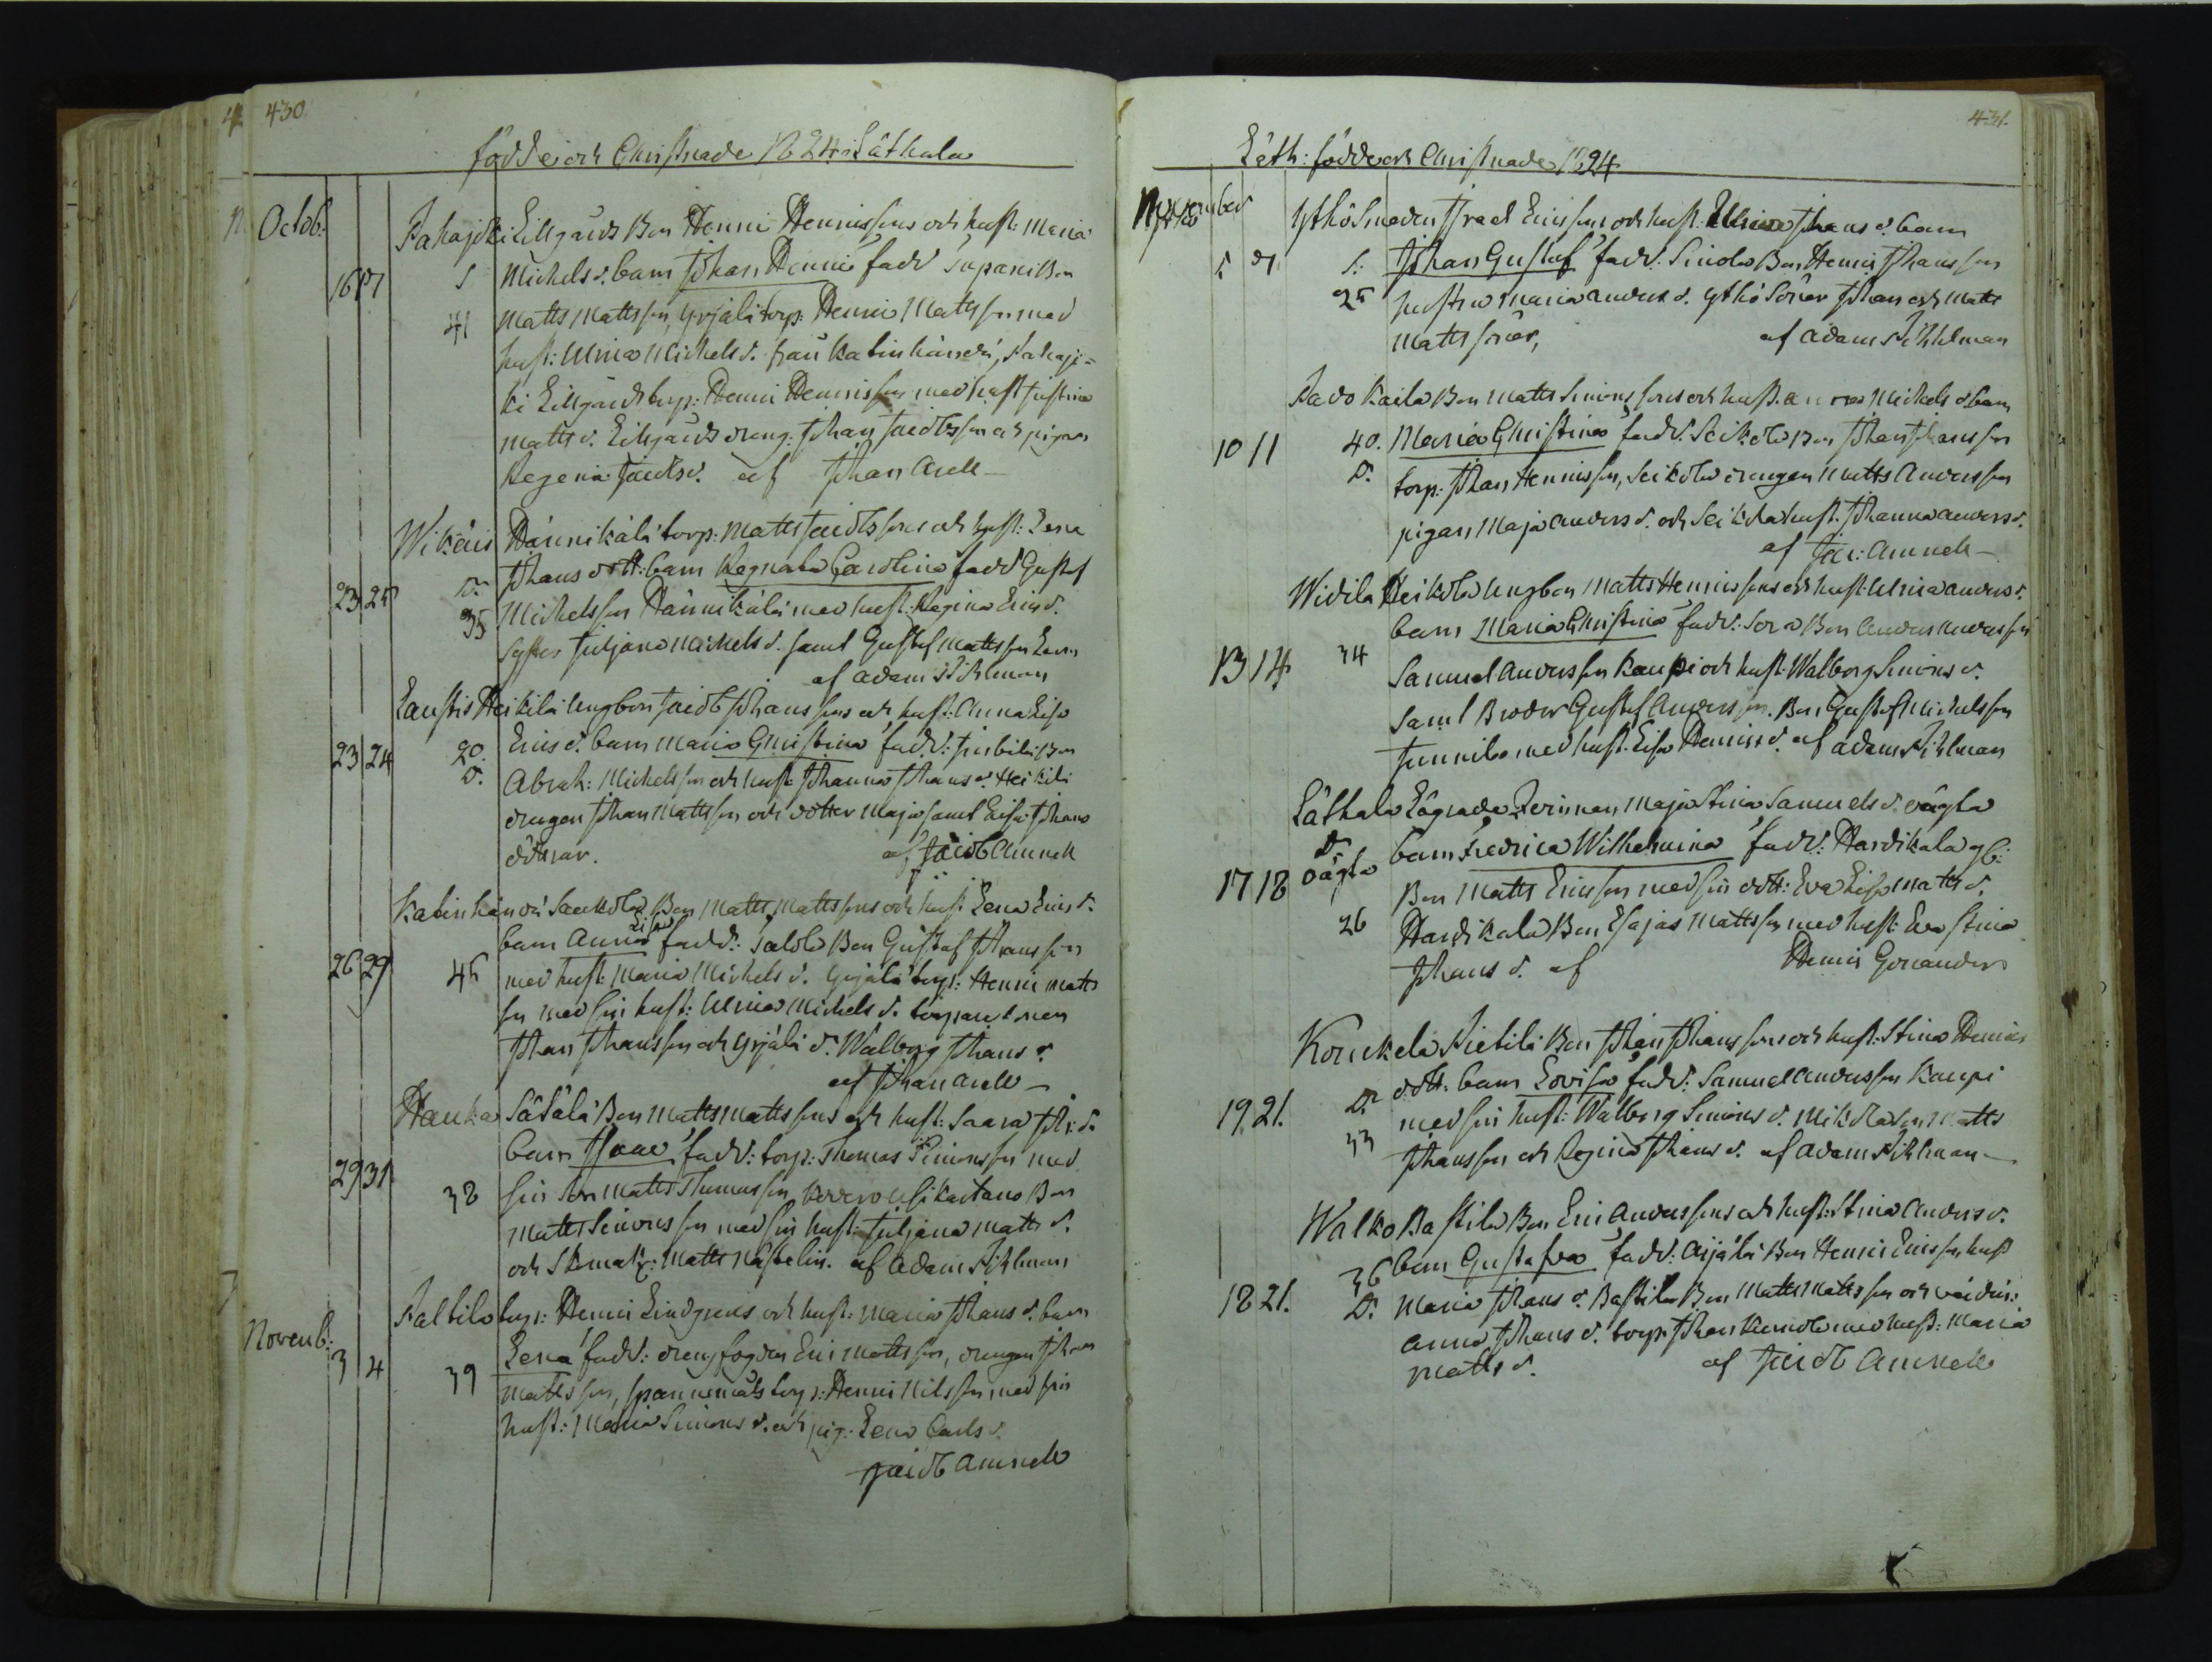 430
födde och Christnade 1824 i Läthala
Octob.
Pahajoki Lillgårds Bon Henric Henricssons och hust: Maria
16 17 S Michels d. barn Johan Henric fadd
41 Matts Mattsson, Yrjälä torp: Henric Mattsson med
hust: Ulrica Michels d. från Katinhända, Pahajo=
ki Lillgårds torp: Henric Henricsson med hust Justina
Matts d. Lillgårds dreng: Johan Jacobsson och pigan
Regina Jacobs d. af Johan Arell
Wikais Hännikälä torp: Matts Jacobssons och hust: Lena
D. Johans dott: barn Regnata Carolina fadd Gustaf
23 25 35 Michelsson Hännikälä med hust: Regina Erics d.
Syster Juljana Michels d. samt Gustaf Mattsson
af Adam Pihlman
Laustis Heikilä Ungbon Jacob Johanssons och hust: Anna Lisa
23 24 20. Erics d. barn Maria Christina fadd: Bon
D. Abrah: Michelsson och hust: Johanna Johans d. Heikilä
drengen Johan Mattsson och dotter Maja samt Lisa Johans
döttrar. af Jacob Amnell
Katinhända Saukola Bon Matts Mattssons och hust: Lena Erics d.
barn Anna Lisa fadd: Salola Bon Gustaf Johansson
26 29 45 med hust: Maria Michels d. Yrjälä torp: Henric Matts
son med sin hust: Ulrica Michels d. torpare sonen
Johan Johansson och Yrjälä d. Walborg Johans d.
af Johan Arell
Hauka Sätälä Bon Matts Mattssons och hust: Saara Joh: d.
barn Isaac fadd: torp: Thomas Simonsson med
29 31 38 sin son Matts Thomasson, Bon
Matts Simonsson med sin hust: Juljana Matts d.
och Skomak: Matts Nästelin. af Adam Pihlman
Paltila torp: Henric Lindgrens och hust: Maria Johans d. barn
Novenb:
3 4 39 Lena fadd: drengfogden Eric Mattsson, drengen Johan
Mattsson, torp: Henric Nilsson med sin
hust: Maria Simons d. och pig: Lena Carls d.
Jacob Amnell
431.
Läth: födde och Christnade 1824.
November
Ythö Smeden Israel Ericsson och hust: Ulrica Johans d. barn
5 7 S: Johan Gustaf fadd: Sinola Bon Henric Johansson
25 hustru Maria Anders d. Ythö Söner Johan och Matts
Matts söner, af Adam Pihlman
Pavo Kaila Bon Matts Simonssons och hust. Anna Michels d barn
10 11 40. Maria Christina fadd: Seikola Bon Johan Johansson
D. torp: Johan Henricsson, Seikola drengen Matts Andersson
pigan Maja Anders d. och Seikola hust. Johanna Anders d.
af Jac: Amnell
Widila Heikola Ungbon Matts Henricssons och hust: Ulrica Anders d.
barn Maria Christina fadd: Sora Bon Anders Andersson
13 14 34 Samuel Andersson Kaupi och hust. Walborg Simons d.
Saml Broder Gustaf Andersson. Bon Gustaf Michelsson
Junnila med hust. Lisa Henrics d. af Adam Pihlman
Läthala Lägrade Qvinnan Maja Stina Samuels d. oägta
D. barn Fredrica Wilhelmina fadd: Hardikala
17 18 oägta Bon Matts Ericsson med sin dott: Eva Lisa Matts d.
26 Hardikala Bon Esajas Mattsson med hust: Eva Stina
Johans d. af Henric Gonander
Kouckela Pietilä Bon Johan Johanssons och hust: Stina Henrics
D. dott: barn Lovisa fadd: Samuel Andersson Kaupi
19 21. 33 med sin hust: Walborg Simons d. Mikola Bon Matts
Johansson och Regina Johans d. af Adam Pihlman
Walko Bastila Bon Eric Anderssons och hust: Stina Anders d.
36 barn Gustafva fadd: Äijälä Bon Henric Ericsson hust
18 21. D. Maria Johans d. Bastila Bon Matts Mattsson och
Anna Johans d. torp: Johan med hust: Maria
Matts d. af Jacob Amnell